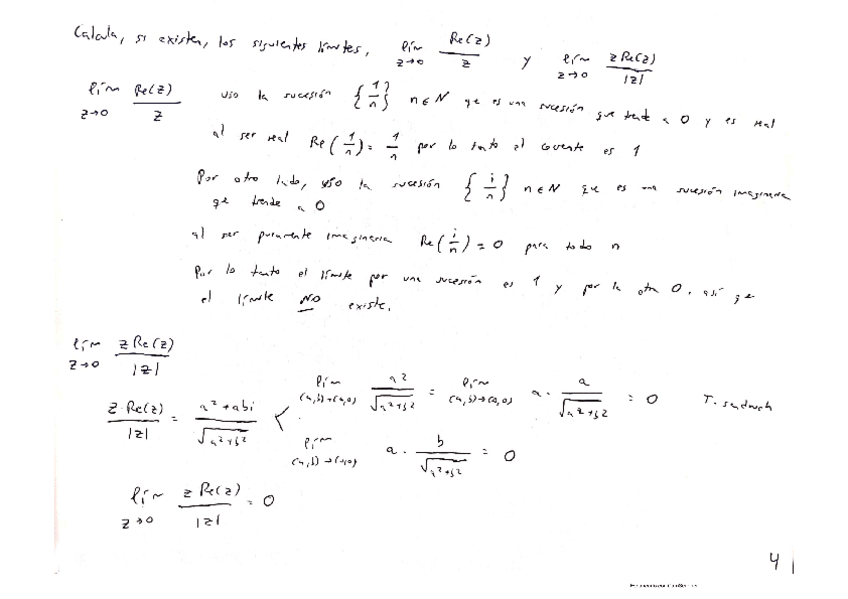 Calcula, si existen, los siguientes límites, lím z→0 Re(z)/z y lím z→0 z Re(z)/|z|
lím z→0 Re(z)/z uso la sucesión {1/n} n∈N qe es una sucesión que tende a 0 y es real
al ser real Re(1/n) = 1/n por lo tanto el cociente es 1
Por otro lado, uso la sucesión {i/n} n∈N que es una sucesión imaginaria
qe tiende a 0
al ser puramente imaginaria Re(i/n) = 0 para todo n
Por lo tanto el límite por una sucesión es 1 y por la otra 0, así qe
el límite NO existe.
lím z→0 z Re(z)/|z|
z·Re(z)/|z| = a²+abi/√a²+b² < lím (a,b)→(0,0) a²/√a²+b² = lím (a,b)→(0,0) a · a/√a²+b² = 0 T. sandwich
lím (a,b)→(0,0) a · b/√a²+b² = 0
lím z→0 z Re(z)/|z| = 0
4